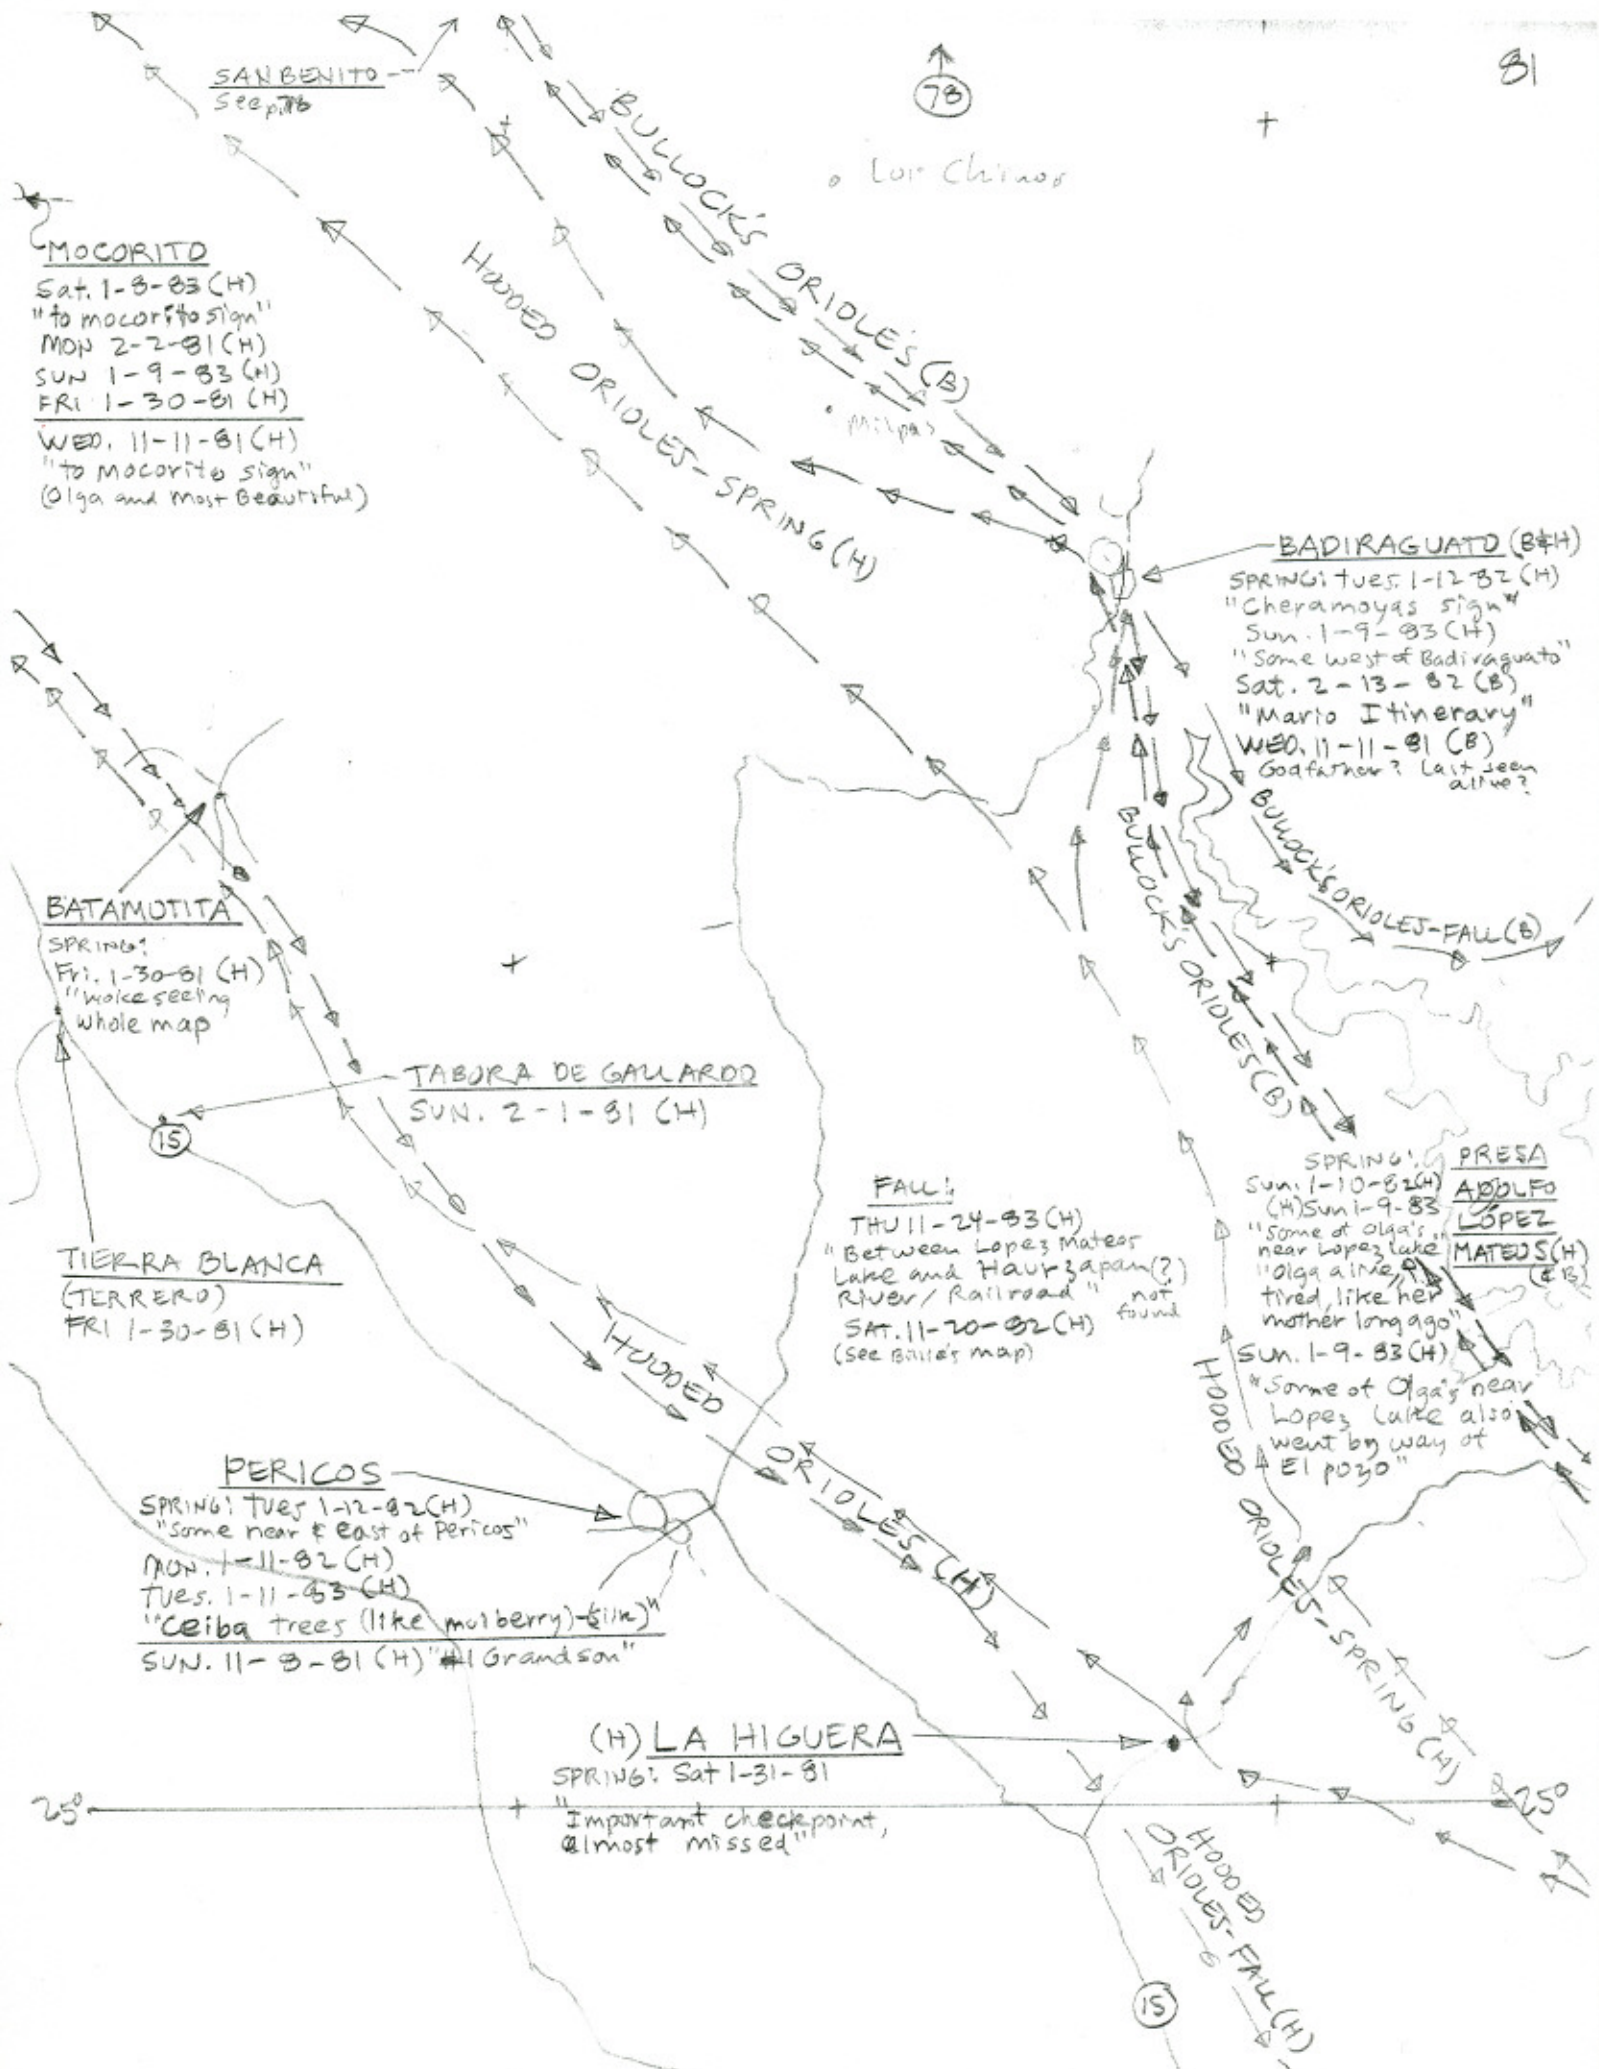 81
78
SAN BENITO
See p. 78
Los Chinos
BULLOCK'S ORIOLE'S (B)
HOODED ORIOLES-SPRING (H)
milpas
MOCORITO
Sat. 1-8-83 (H)
"to mocorito sign"
MON 2-2-81 (H)
SUN 1-9-83 (H)
FRI 1-30-81 (H)
WED. 11-11-81 (H)
"to mocorito sign"
(Olga and Most Beautiful)
BADIRAGUATO (B&H)
SPRING: tues. 1-12-82 (H)
"Cheramoyas sign"
Sun. 1-9-83 (H)
"Some west of Badiraguato"
Sat. 2-13-82 (B)
"Mario Itinerary"
WED. 11-11-81 (B)
Godfather? Last seen
alive?
BULLOCK'S ORIOLES-FALL (B)
BULLOCK'S ORIOLES (B)
BATAMOTITA
SPRING:
Fri. 1-30-81 (H)
"woke seeing
whole map"
TABORA DE GALLARDO
SUN. 2-1-81 (H)
15
TIERRA BLANCA
(TERRERO)
FRI 1-30-81 (H)
FALL:
THU 11-24-83 (H)
"Between Lopez Mateos
Lake and Haurzapan (?)
River/Railroad" not
found
SAT. 11-20-82 (H)
(See Billie's map)
PRESA
ADOLFO
LÓPEZ
MATEOS (H)
(& B)
SPRING:
Sun. 1-10-82 (H)
(H) Sun 1-9-83
"Some of Olga's
near Lopez Lake"
"Olga alive,
tired, like her
mother long ago"
Sun. 1-9-83 (H)
"Some of Olga's near
Lopez Lake also
went by way of
El pozo"
HOODED ORIOLES (H)
HOODED ORIOLES-SPRING (H)
PERICOS
SPRING: tues 1-12-82 (H)
"Some near & east of Pericos"
MON. 1-11-82 (H)
tues. 1-11-83 (H)
"Ceiba trees (like mulberry)-silk)"
SUN. 11-8-81 (H) "#1 Grandson"
(H) LA HIGUERA
SPRING: Sat 1-31-81
"Important checkpoint,
almost missed"
25°
25°
HOODED
ORIOLES-FALL (H)
15